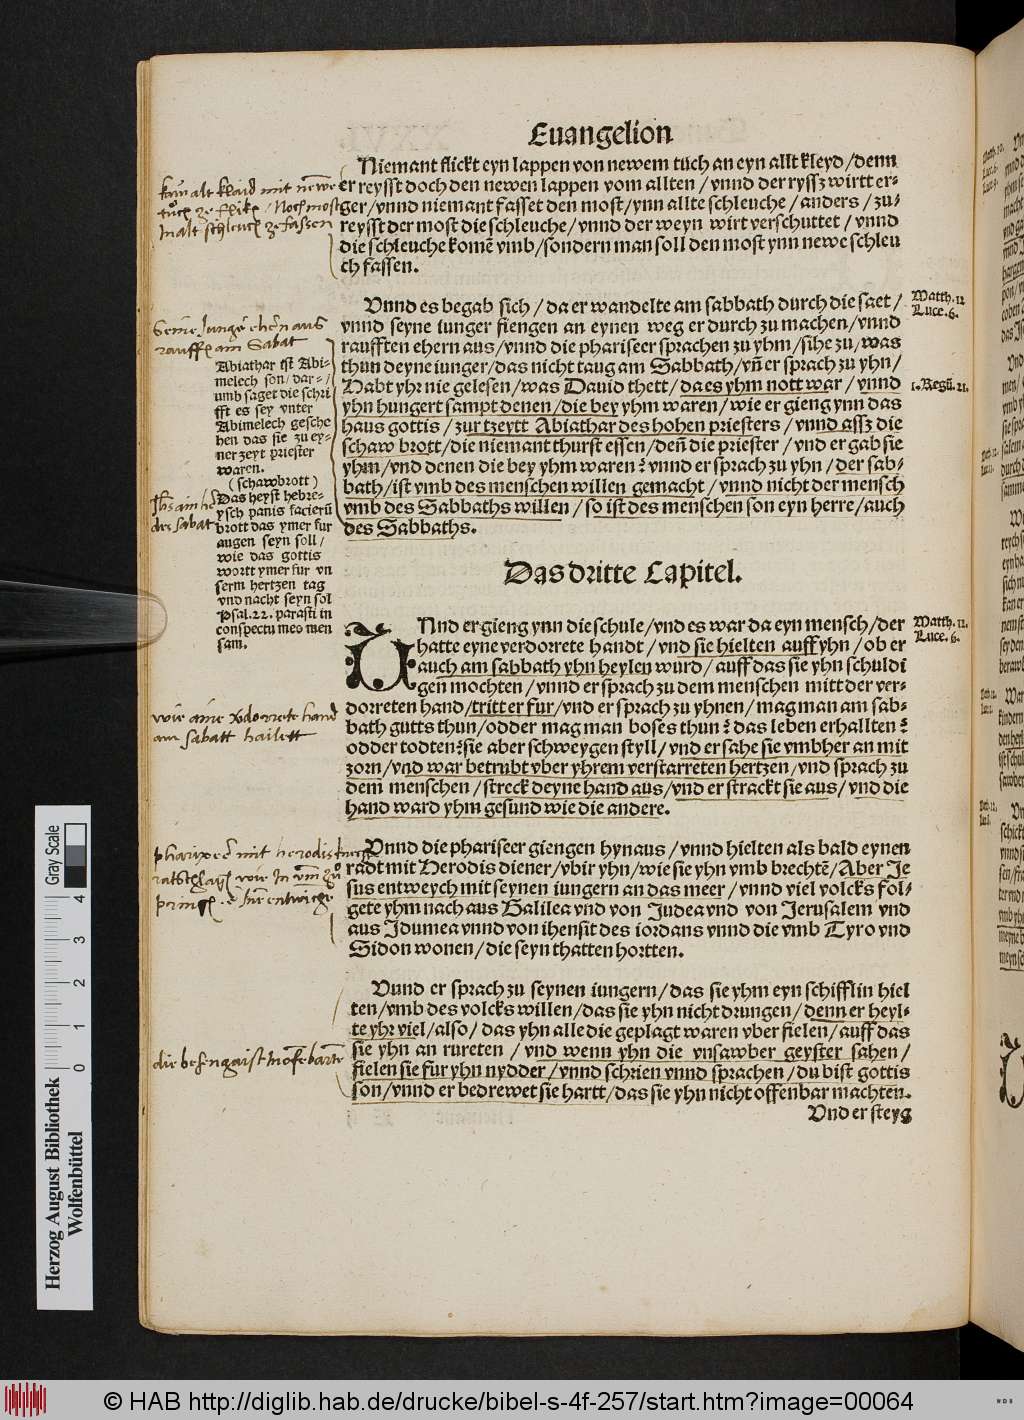 Euangelion
Niemant flickt eyn lappen von newem tuch an eyn allt kleyd/denn
er reysst doch den newen lappen vom allten / vnnd der ryssz wirtt er-
ger/vnnd niemant fasset den most/ynn allte schleuche/anders/zu-
reysst der most die schleuche/vnnd der weyn wirt verschuttet/vnnd
die schleuche komē vmb/sondern man soll den most ynn newe schleu
ch fassen.
kain alt klaid mit newe
Inalt schleuch ze fassen
Vnnd es begab sich/da er wandelte am sabbath durch die saet/
vnnd seyne iunger fiengen an eynen weg er durch zu machen/vnnd
raufften ehern aus/vnnd die phariseer sprachen zu yhm/sihe zu/was
thun deyne iunger/das nicht taug am Sabbath/vñ er sprach zu yhn/
Habt yhr nie gelesen/was Dauid thett/da es yhm nott war/vnnd
yhn hungert sampt denen/die bey yhm waren/wie er gieng ynn das
haus gottis/zur tzeytt Abiathar des hohen priesters/vnnd assz die
schaw brott/die niemant thurst essen/deñ die priester/vnd er gab sie
yhm/vnd denen die bey yhm waren? vnnd er sprach zu yhn/der sab-
bath/ist vmb des menschen willen gemacht/vnnd nicht der mensch
vmb des Sabbaths willen/so ist des menschen son eyn herre/auch
des Sabbaths.
Matth. 12
Luce. 6.
1. Regū. 21.
am Sabat
Abiathar ist Abi-
melech son/dar-
umb saget die schri
fft es sey vnter
Abimelech gesche
hen das sie zu ey-
ner zeyt priester
waren.
(schawbrott)
Das heyst hebre-
ysch panis facierū
brott das ymer fur
augen seyn soll/
wie das gottis
wortt ymer fur vn
serm hertzen tag
vnd nacht seyn sol
Psal.22. parasti in
conspectu meo men
sam.
des sabat
Das dritte Capitel.
VNnd er gieng ynn die schule/vnd es war da eyn mensch/der
hatte eyne verdorrete handt/vnd sie hielten auff yhn/ob er
auch am sabbath yhn heylen wurd/auff das sie yhn schuldi
gen mochten/vnnd er sprach zu dem menschen mitt der ver-
dorreten hand/tritt er fur/vnd er sprach zu yhnen/mag man am sab-
bath gutts thun/odder mag man boses thun? das leben erhallten?
odder todten? sie aber schweygen styll/vnd er sahe sie vmbher an mit
zorn/vnd war betrubt vber yhrem verstarreten hertzen/vnd sprach zu
dem menschen/streck deyne hand aus/vnd er strackt sie aus/vnd die
hand ward yhm gesund wie die andere.
Matth. 12.
Luce. 6.
wie aine verdorrete hand
am sabatt hailett
Vnnd die phariseer giengen hynaus/vnnd hielten als bald eynen
radt mit Herodis diener/vbir yhn/wie sie yhn vmb brechtē/Aber Je
sus entweych mit seynen iungern an das meer/vnnd viel volcks fol-
gete yhm nach aus Galilea vnd von Judea vnd von Jerusalem vnd
aus Idumea vnnd von ihensit des iordans vnnd die vmb Tyro vnd
Sidon wonen/die seyn thatten hortten.
Vnnd er sprach zu seynen iungern/das sie yhm eyn schifflin hiel
ten/vmb des volcks willen/das sie yhn nicht drungen/denn er heyl-
te yhr viel/also/das yhn alle die geplagt waren vber fielen/auff das
sie yhn an rureten/vnd wenn yhn die vnsawber geyster sahen/
fielen sie fur yhn nydder/vnnd schrien vnnd sprachen/du bist gottis
son/vnnd er bedrewet sie hartt/das sie yhn nicht offenbar machten.
Vnd er steyg
Gray Scale
0 1 2 3 4
Herzog August Bibliothek
Wolfenbüttel
© HAB http://diglib.hab.de/drucke/bibel-s-4f-257/start.htm?image=00064